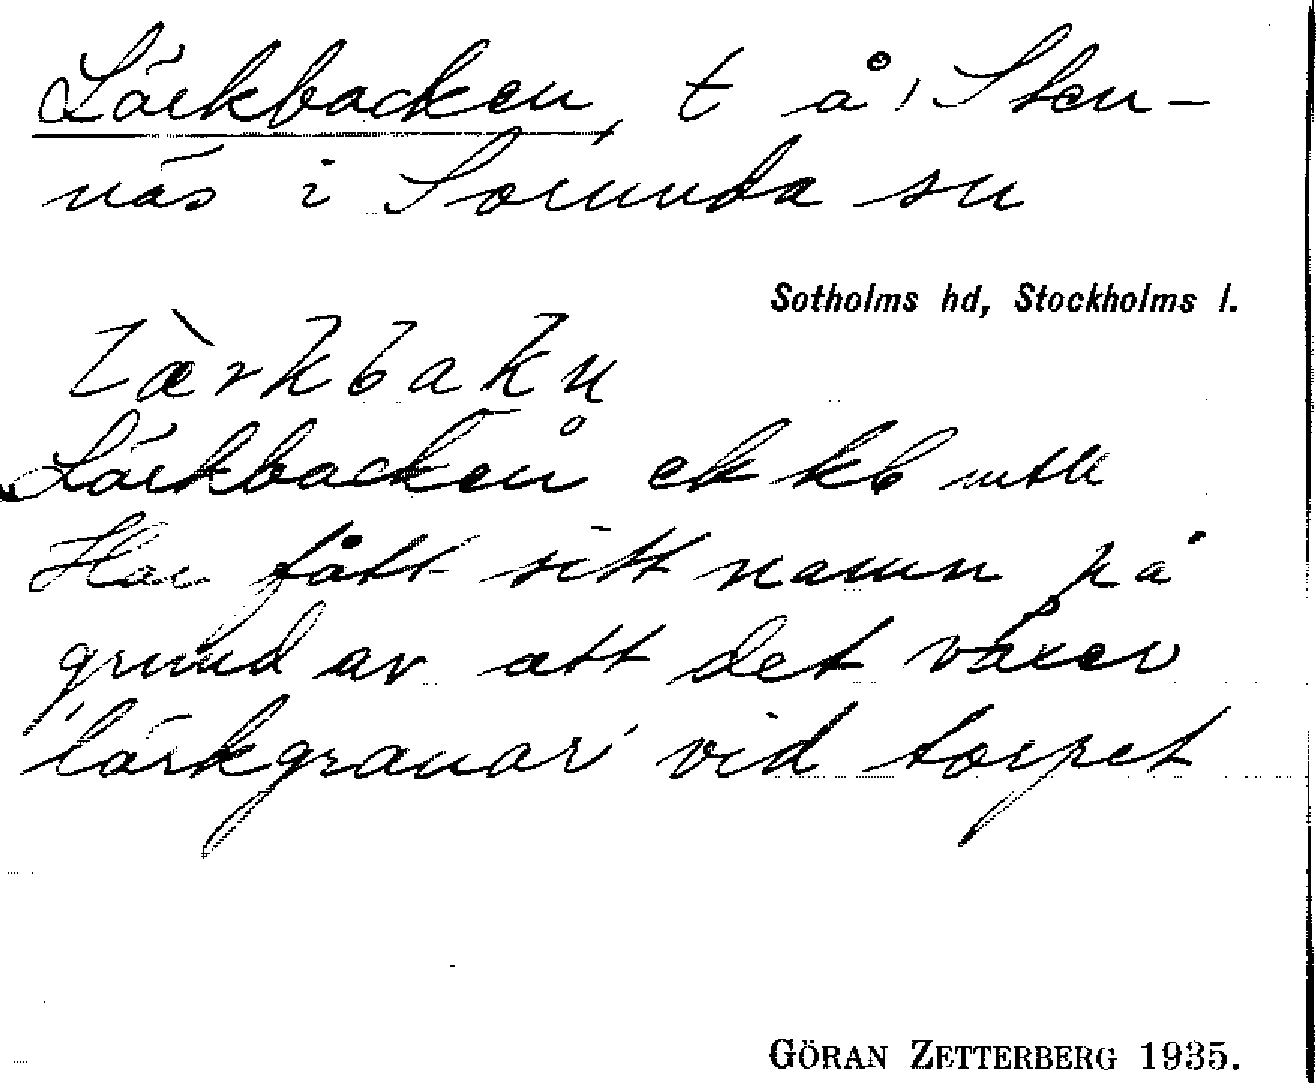 Lärkbacken, t å Sten-
näs i Sorunda sn
Sotholms hd, Stockholms l.
lærkbakn
Lärkbacken ek kb mtll
Har fått sitt namn på
grund av att det växer
'lärkgranar' vid torpet
GÖRAN ZETTERBERG 1935.